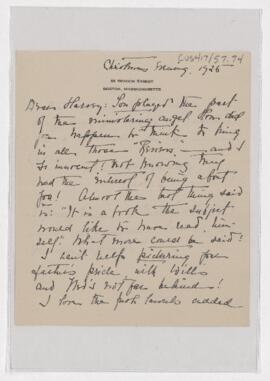 CUS417/57.74
Christmas Evening, 1925
BOSTON, MASSACHUSETTS
Dear Harvey: You played the part
of the ministering angel
you happen to think to bring
in all those "Reviews" — and I
so innocent! Not knowing they
had the interest of being about
you! Almost the best thing said
is: "It is a book the subject
would like to have read, him-
self." What more could be said!
I can't help picturing your
father's pride with Will's
and Fred's not far behind!
I love the fresh laurels added